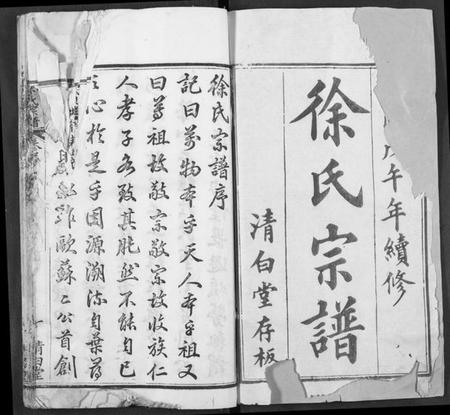 午年續修
徐氏宗譜
清白堂存板
徐氏宗譜序
記曰萬物本乎天人本乎祖又
曰尊祖故敬宗敬宗故收族仁
人孝子各致其
然不能自已
之心於是乎因源溯流自葉尋
歐蘇二公首創
清白堂